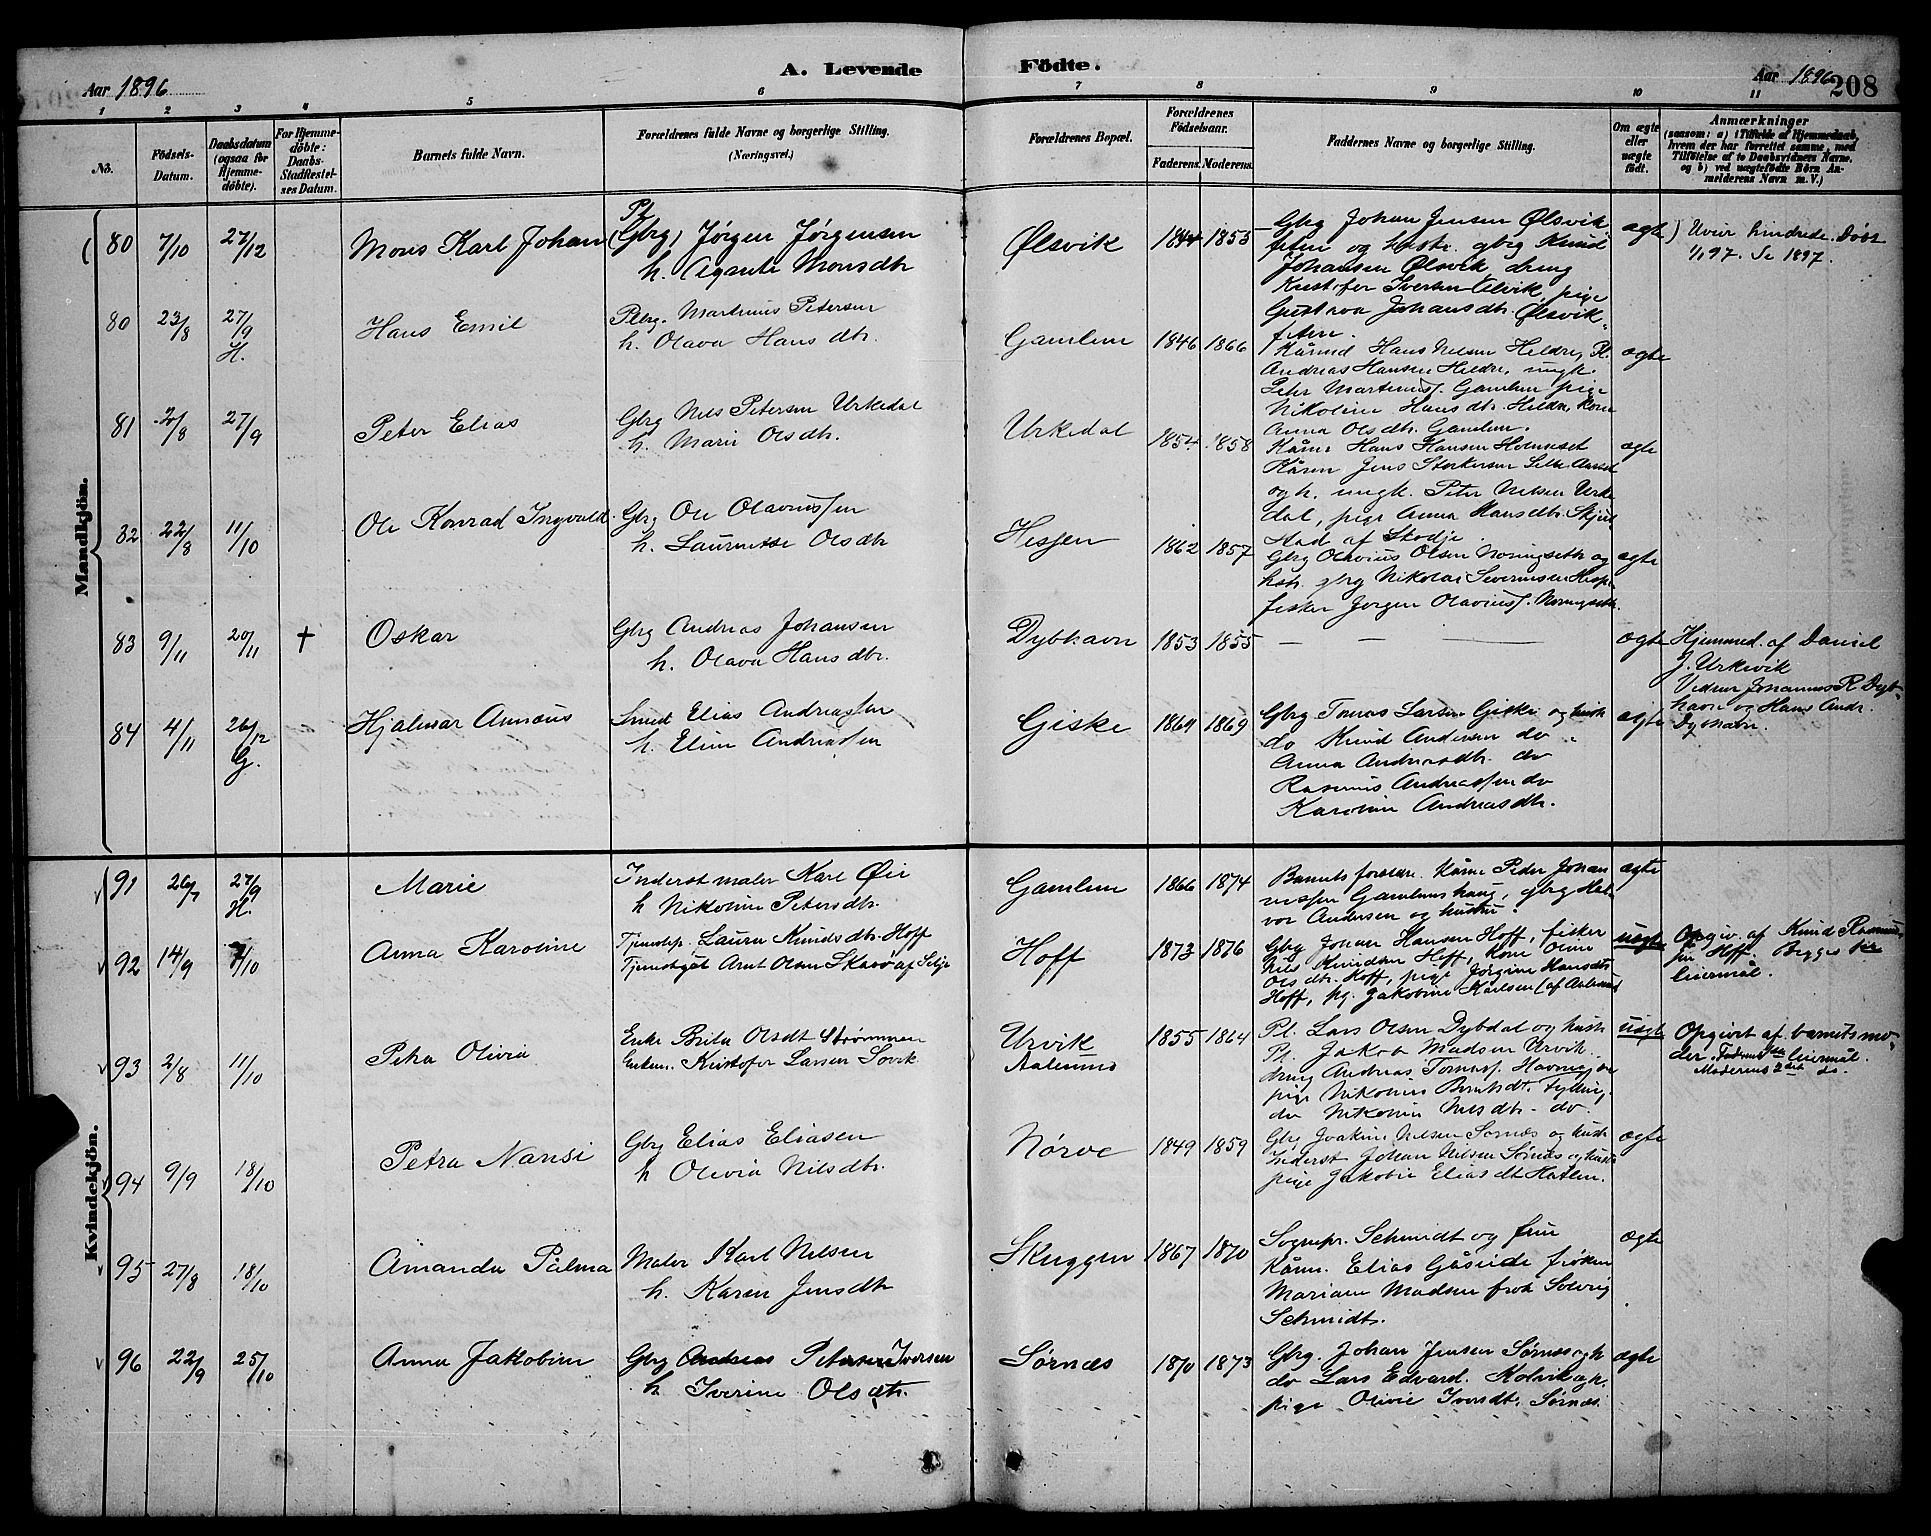 Aar 1896
A. Levende
Födte.
Aar 1896
208
1 2 3 4 5 6 7 8 9 10 11
No.
Födsels-
Datum.
Daabsdatum
(ogsaa for
Hjemme-
döbte).
For Hjemme-
döbte:
Daabs-
Stadfæstel-
ses Datum.
Barnets fulde Navn.
Forældrenes fulde Navne og borgerlige Stilling.
(Næringsvei.)
Forældrenes Bopæl.
Forældrenes
Födselsaar.
Faderens. Moderens.
Faddernes Navne og borgerlige Stilling.
Om ægte
eller
uægte
födt.
Anmærkninger
(saasom: a) i Tilfælde af Hjemmedaab,
hvem der har forrettet samme, med
Tilföielse af to Daabsvidners Navne,
og b) ved uægtefödte Börn An-
melderens Navn m. V.)
Mandkjön.
80 7/10 27/12
Mons Karl Johan
Pl.
(Gbrg) Jørgen Jørgensen
h. Agnete Monsdtr
Ølsvik
1844 1853
Gbrg Johan Jensen Ølsvik
feten og hustr. gbrg Knud
Johansen Ølsvik, dreng
Kristofer Iversen Ølsvik, pige
Gustava Johansdtr. Ølsvik-
feten.
ægte
) Uveir hindrede. Døbt
1/1 97. Se 1897.
80 23/8 27/9
H.
Hans Emil
Pbrg. Martinus Petersen
h. Olava Hansdtr.
Gamlem
1846 1866
Kårmd Hans Nelsen Heldre, Pl.
Andreas Hansen Heldre, ungk.
Peter Martinusf. Gamlem, pige
Nikoline Hansdtr. Heldre, kone
Anna Olsdtr. Gamlem.
ægte
81 2/8 27/9
Peter Elias
Gbrg Nils Petersen Urkedal
h. Marie Olsdtr.
Urkedal
1854 1858
Kårm. Hans Hansen Holmeset
Kårm Jens Storkersen
og h. ungk. Peter Nelsen Urke
dal, pige Anna Hansdtr. Skjel
stad af Skodje.
ægte
82 22/8 11/10
Ole Konrad Ingvald
Gbrg Ole Olavussen
h. Laurentse Olsdtr
Hessen
1862 1857
Gbrg Olavius Olsen og
hstr. gbrg Nikolai Severinsen
fisker Jørgen Olaviusf.
ægte
83 9/11 20/11 †
Oskar
Gbrg Andreas Johansen
h. Olava Hansdtr.
Dybhavn
1853 1855
— — —
ægte
Hjemmed. af Daniel
J. Urkevik
Vidner Johannes R. Dyb-
havn og Hans Andr.
Dybhavn.
84 4/11 26/12
G.
Hjalmar Annæus
Smed Elias Andreassen
h. Eline Andreassen
Giske
1864 1869
Gbrg Tomas Larsen Giske og hustr
do Knud Andersen do
Anna Andreasdtr. do
Rasmus Andreassen do
Karoline Andreasdtr.
ægte
Kvindekjön.
91 26/7 27/9
H.
Marie
Inderst maler Karl Øie
h Nikoline Petersdtr.
Gamlem
1866 1874
Barnets forældre. Kårm Peder Johan
nessen Gamlemshaug, gbrg Hal-
vor Andersen og hustru.
ægte
92 14/9 4/10
Anna Karoline
Tjenestep. Laura Knudsdtr. Hoff
Tjenestegut Arnt Olsen Skarø af Selje
Hoff
1873 1876
Gbrg Johan Hansen Hoff, fisker
Nils Knudsen Hoff, kone Oline
Olsdtr. Hoff, pige Jørgine Hansdtr
Hoff, pg. Jakobine Karlsen (af Aalesund
uægte
Opgiv. af Knud Rasmus-
sen Hoff. Begges 1ste
leiermål.
93 2/8 11/10
Petra Olivia
Enke Brita Olsdt Strømmen
Enkem. Kristofer Larsen Sovik
Urvik
Aalesund
1855 1864
Pl. Lars Olsen Dybdal og hustr
Pl. Jakob Madsen Urvik.
dreng Andreas
pige Nikoline Berntsdt. Fylling,
do Nikoline Nilsdtr. do.
uægte
Opgivet af barnets mo-
der. Faderens 1ste leiermål.
Moderens 2det do.
94 9/9 18/10
Petra Nansi
Gbrg Elias Eliasen
h Olivia Nilsdtr.
Nørve
1849 1859
Gbrg Joakim Nilsen Sørnæs og hustr
Inderst Johan Nilsen Sørnæs og hustr
pige Jakobie Eliasdt Hatlem.
ægte
95 27/8 18/10
Amanda Palma
Maler Karl Nilsen
h. Karen Jensdtr
Skuggen
1867 1870
Sognepr. Schmidt og frue
Kårm. Elias Gåseide frøken
Mariane Madsen frøk Solveig
Schmidt.
ægte
96 22/9 25/10
Anna Jakobine
Gbrg Andreas Petersen Iversen
h Iverine Olsdtr.
Sørnæs
1870 1873
Gbrg. Johan Jensen Sørnæs og h
do Lars Edvard. Kolvik og h.
pige Olivie Iversdt. Sørnæs.
ægte